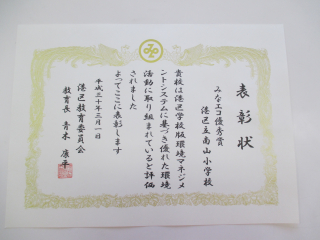 表彰状
みなエコ優秀賞
港区立南山小学校
貴校は港区学校版環境マネジメ
ントシステムに基づき優れた環境
活動に取り組まれていると評価
されました
よってここに表彰します
平成三十年三月一日
港区教育委員会
教育長 青木 康平